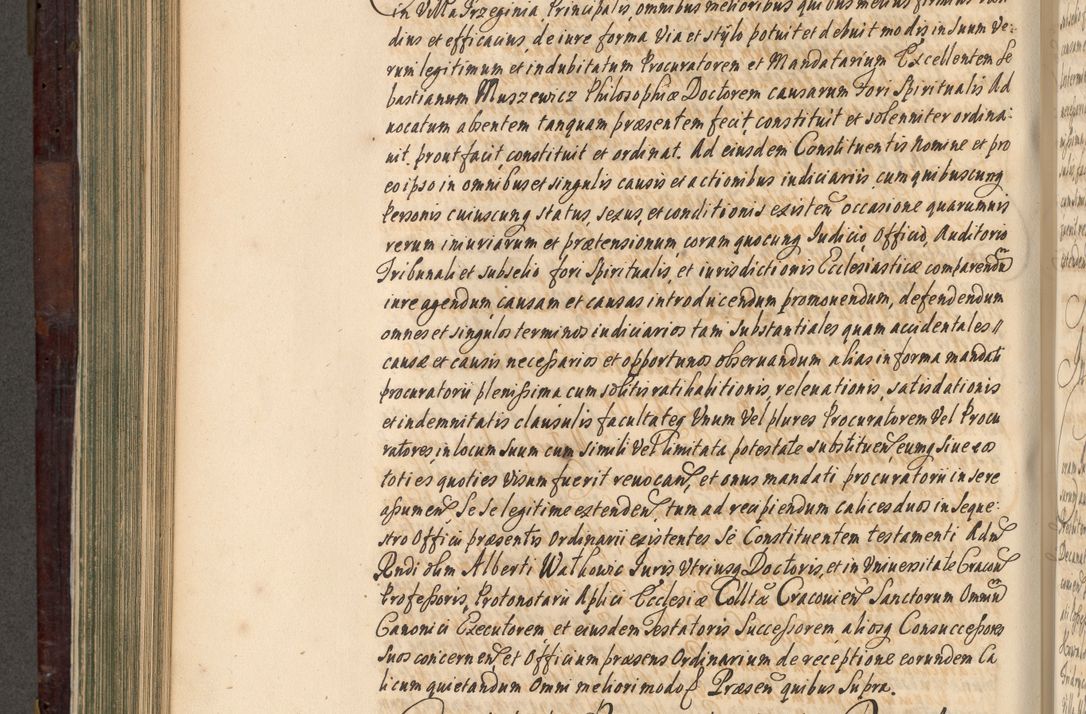 in Villa Przeginia, Principalis, omnibus melioribus quibus melius firmius
dius et efficacius, de iure forma via et stylo potuit et debuit modis in suum Ve-
rum legitimum et indubitatum Procuratorem et Mandatarium Excellentem Se
bastianum Muszewicz Philosophiæ Doctorem causarum fori Spiritualis Ad
uocatum absentem tanquam præsentem fecit, constituit et solenniter ordina-
uit, prout facit, constituit et ordinat. Ad eiusdem Constituentis Nomine et pro
eo ipso in omnibus et singulis causis et actionibus iudiciariis, cum quibuscunq
Personis cuiuscunq status, sexus, et conditionis existen occasione quarumuis
rerum iniuriarum et prætensionum, coram quocunq Iudicio, Officio, Auditorio
Tribunali et subselio fori Spiritualis, et iurisdictionis Ecclesiasticæ comparendū
iure agendum causam et causas introducendum promouendum, defendendum
omnes et singulos terminos iudiciarios tam Substantiales quam accidentales //
causæ et causis necessarios et opportunos obseruandum alias in forma mandati
procuratorii plenissima cum solitis ratihabitionis, releuationis, satisdationis
et indemnitatis clausulis facultateq Vnum Vel plures Procuratorem Vel Procu
ratores, in locum suum cum simili vel limitata potestate substituen, eumq siue eos
toties quoties visum fuerit reuocan, et onus mandati procuratorii in sere
assumen, Se se legitime extenden, tum ad recipiendum calices duos in seque-
stro Officii præsentis Ordinarii existentes Se Constituentem testamenti Adm
Rndi olim Alberti Walkowic Iuris Vtriusq Doctoris, et in Vniuersitate Cracon
Professoris, Protonotarii Aplici Ecclesiæ Colltæ Cracouien Sanctorum Omniū
Canonici Executorem et eiusdem Testatoris Successorem, aliosq Consuccessores
suos concernen et Officium præsens Ordinarium de receptione eorundem Ca
licum quietandum Omni meliori modo Præsen quibus Supra.